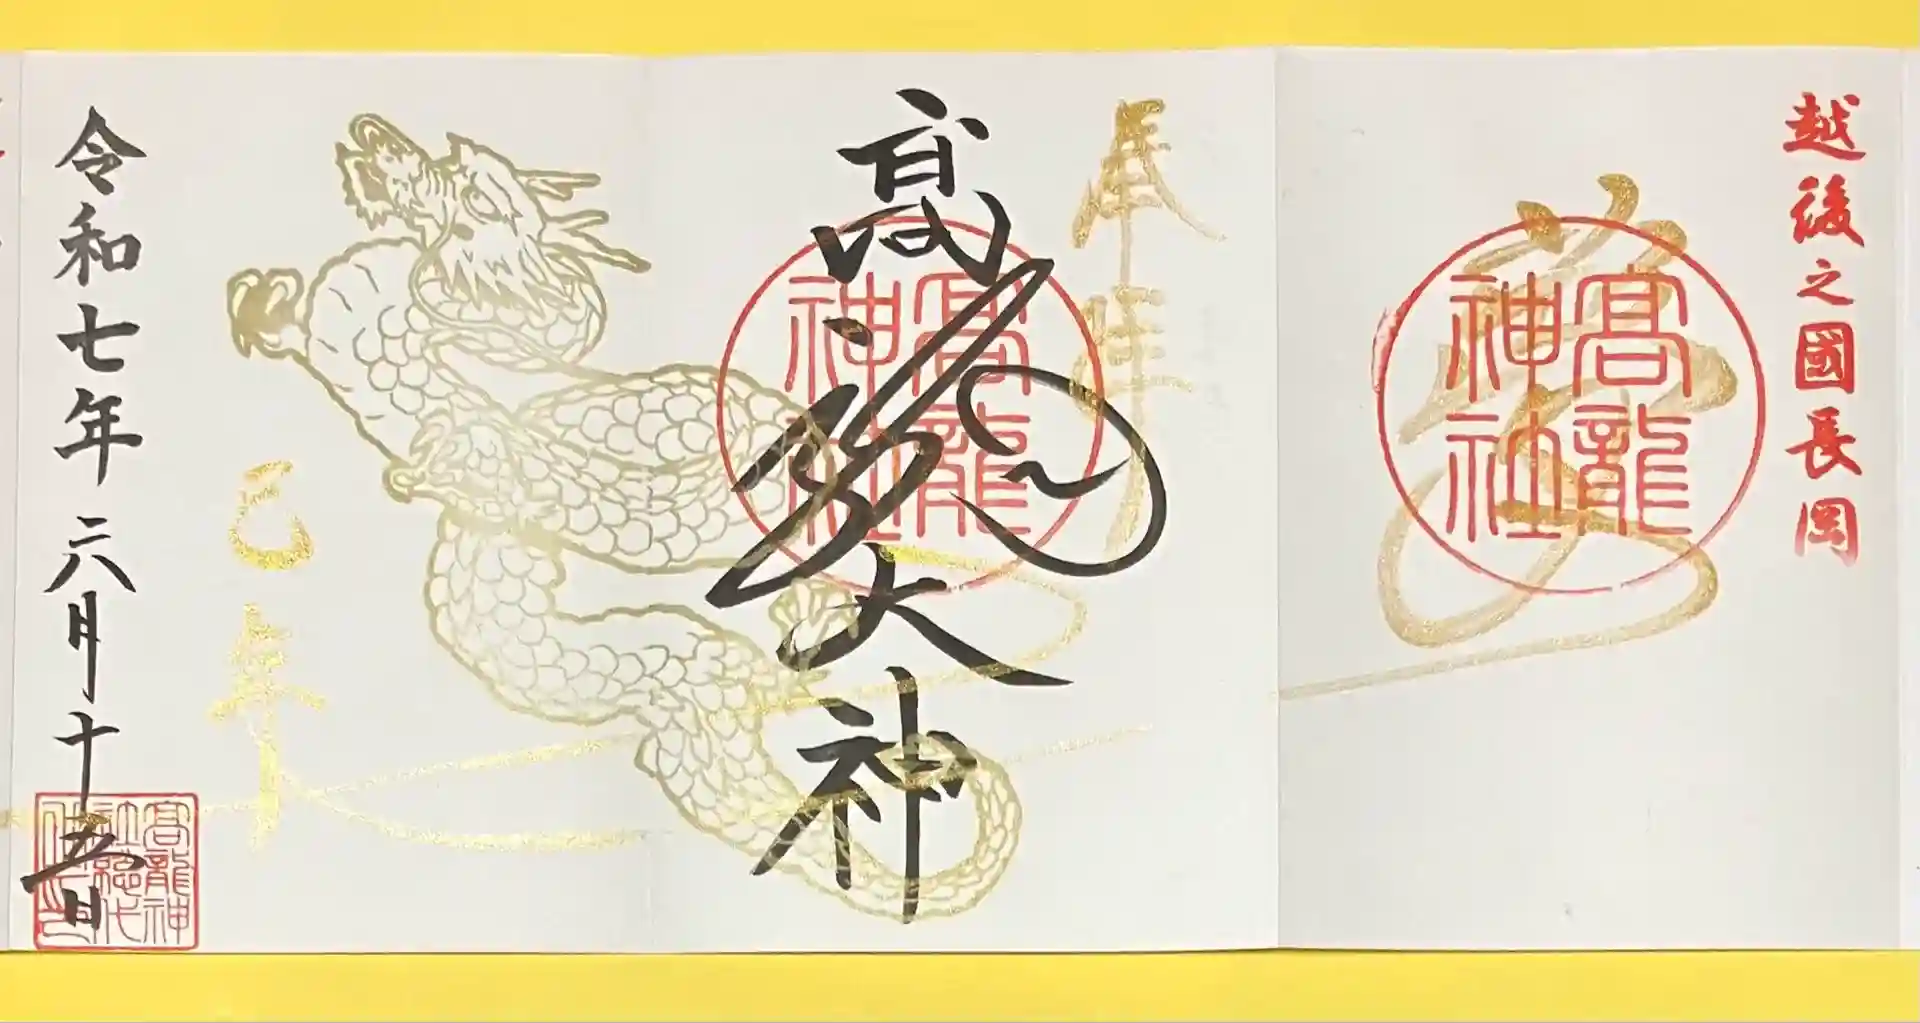 越後之國長岡
高龍
神社
奉拝
高龍大神
高龍
神社
己年
令和七年六月十五日
高龍神
社総代